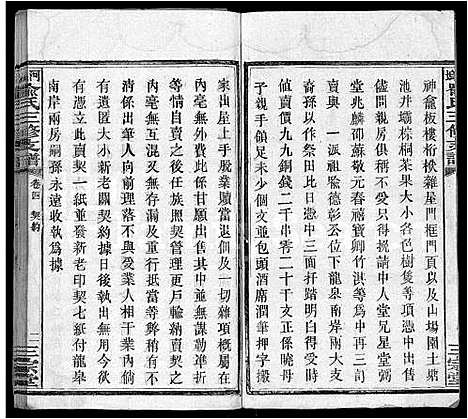 神龕板樓桁椒雜屋門框門頁以及山場園土鼎
池井壩棕桐茶果大小各色樹等項憑中出售
堂兆麟邵蘇敬元春劉竹洪等為中再中人堂兄星堂弟
賣與一派祖驗德彰公位下龍泉南岸兩大支
嗇孫以作祭田比日憑中三面扦踏明白得受時
值賣價九九銅錢二千串零二十大文正係曉母
子親手領訖未少個文並包頭酒席潤筆神龕移
家出屋上手股險贖當退佃及一切雜項概屬在
內毫無重互此係甘願出售其中並無謀勒準折
之弊自賣之後任族照契管理更戶輸納賣契之
內毫無互混又無存漏及重行抵當等弊稍有不
清係出筆人理落不與受業人相干業內所有倘
有遺匿大小新老關契約據日後執出無用今欲
有憑立此賣契一紙並發新老印契七紙付龍泉
南岸兩房嗣孫永遠收執為據
河
俞氏三修支譜
卷四
契約
二
三宗堂
三宗堂